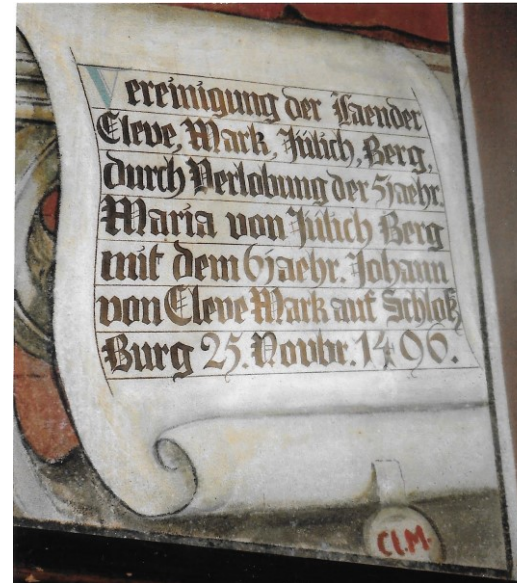 Vereinigung der Laender
Cleve, Mark, Jülich, Berg,
durch Verlobung der 5jaehr.
Maria von Jülich Berg
mit dem 6jaehr. Johann
von Cleve Mark auf Schloß
Burg 25. Novbr. 1496.
Cl.M.